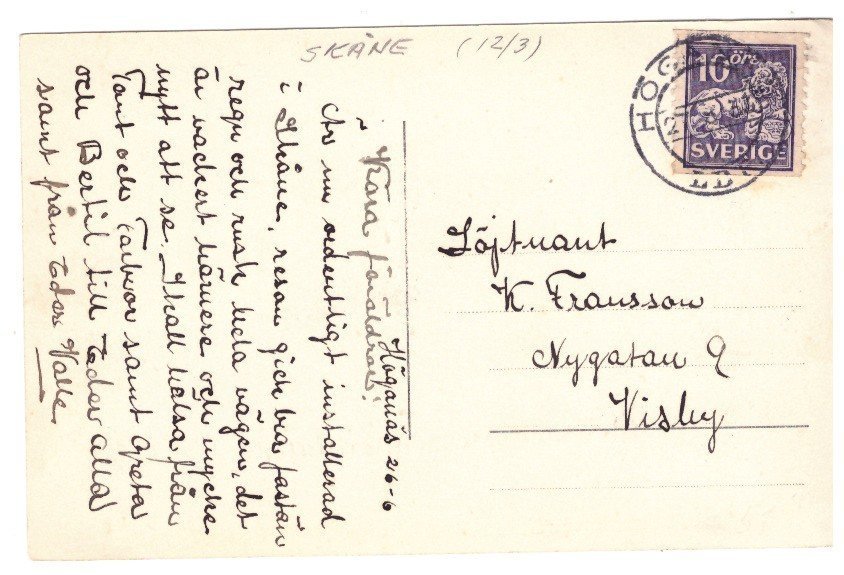 SKÅNE (12/3)
Höganäs 26-6
Kära föräldrar!
Är nu ordentligt installerad
i Skåne, resan gick bra fastän
regn och rusk hela vägen, det
är vackert härnere och mycke
nytt att se. Skall hälsa från
Tant och Farbror samt Greta
och Bertil till Eder alla
samt från Eder Valle.
10 ÖRE
SVERIGE
HÖGANÄS
Löjtnant
K. Fransson
Nygatan 9
Visby